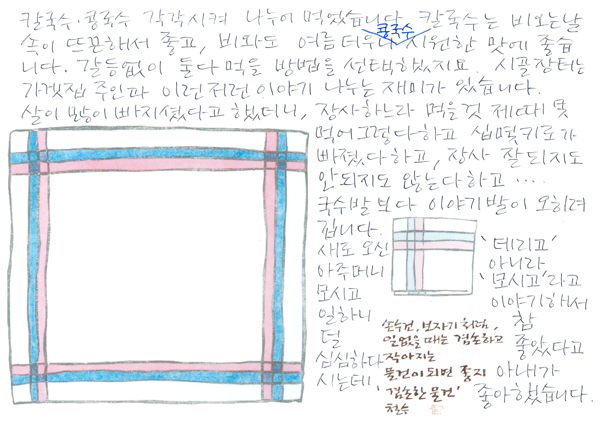 칼국수·콩국수 각각시켜 나누어 먹었습니다. 칼국수는 비오는날
속이 뜨끈해서 좋고, 비와도 여름더우니 콩국수 시원한 맛에 좋습
니다. 갈등없이 둘다먹을 방법을 선택했지요. 시골장터는
가겟집 주인과 이런저런 이야기 나누는 재미가 있습니다.
살이 많이 빠지셨다고 했더니, 장사하느라 먹을것 제때 못
먹어 그렇다하고 십몇키로가
빠졌다하고, 장사 잘되지도
안되지도 않는다하고 ····
국수발 보다 이야기발이 오히려
깁니다.
새로 오신
아주머니
모시고
일하니
덜
심심하다
시는데,
'데리고'
아니라
'모시고'라고
이야기해서
참
좋았다고
아내가
좋아했습니다.
손수건, 보자기처럼,
일없을때는 겸손하고
작아지는
물건이 되면 좋지
'겸손한 물건'
철수